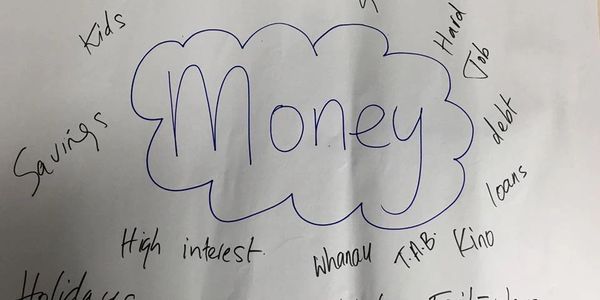 Kids
Hard
Job
Money
Savings
debt
loans
High interest.
Whanau
T.A.B.
Kino
Holidays